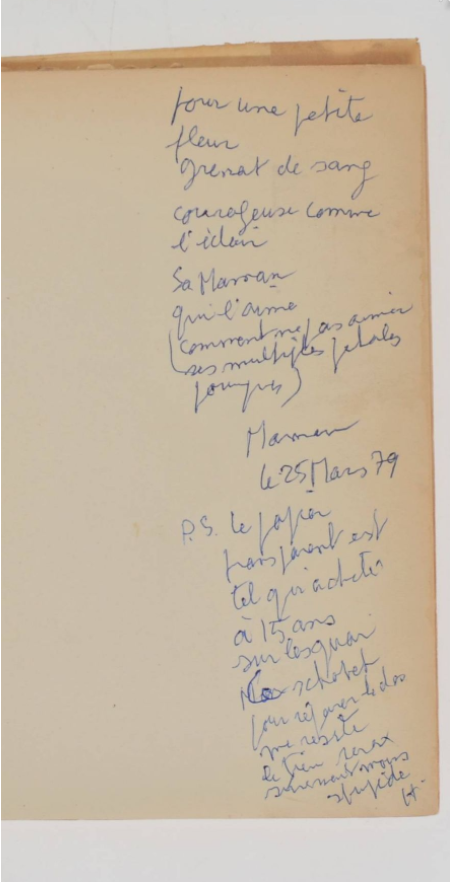 pour une petite
fleur
grenat de sang
courageuse comme
l'éclair
Sa Maman
qui l'aime
(comment ne pas aimer
ses multiples pétales
pourpres)
Maman
le 25 Mars 79
P.S. le papier
transparent est
tel qu'acheté
à 15 ans
sur les quai
pour réparer le dos
me résiste
le tien sera
sûrement moins
stupide